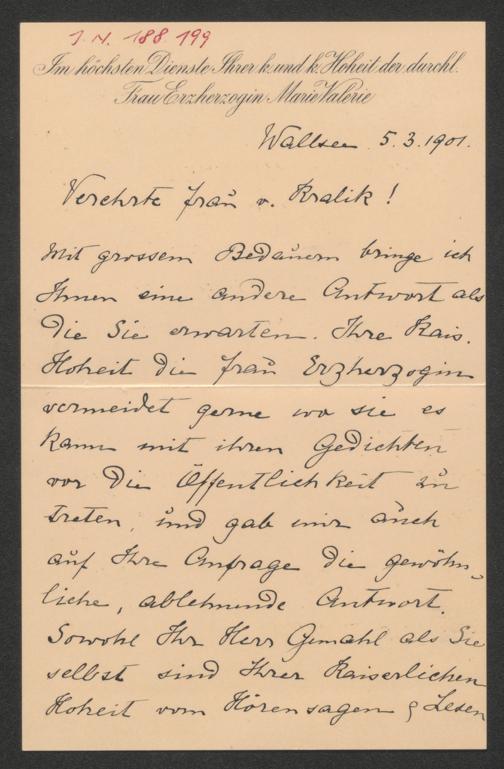 J. N. 188 199
Im höchsten Dienste Ihrer k. und k. Hoheit der durchl.
Frau Erzherzogin Marie Valerie
Wallsee 5.3.1901.
Verehrte Frau v. Kralik!
Mit grossem Bedauern bringe ich
Ihnen eine andere Antwort als
die Sie erwarten. Ihre Kais.
Hoheit die Frau Erzherzogin
vermeidet gerne wo sie es
kann mit ihren Gedichten
vor die Öffentlichkeit zu
treten, und gab mir auch
auf Ihre Anfrage die gewöhn-
liche, ablehnende Antwort.
Sowohl Ihr Herr Gemahl als Sie
selbst sind Ihrer Kaiserlichen
Hoheit vom Hörensagen & Lesen